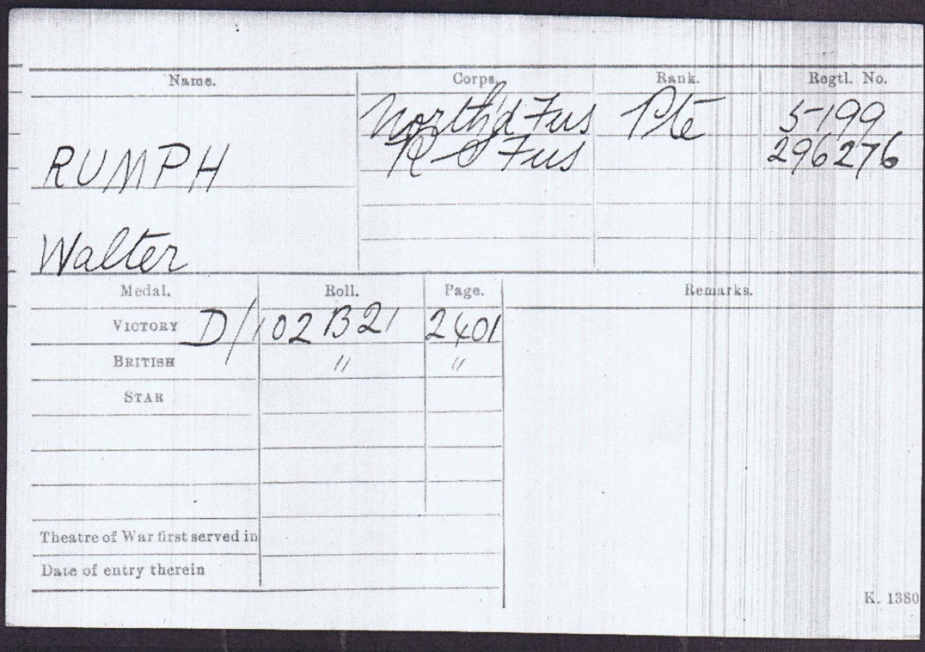 Name. Corps. Rank. Regtl. No.
North'd Fus Pte 5199
RUMPH R S Fus 296276
Walter
Medal. Roll. Page. Remarks.
VICTORY D/102 B21 2401
BRITISH " "
STAR
Theatre of War first served in
Date of entry therein
K. 1380